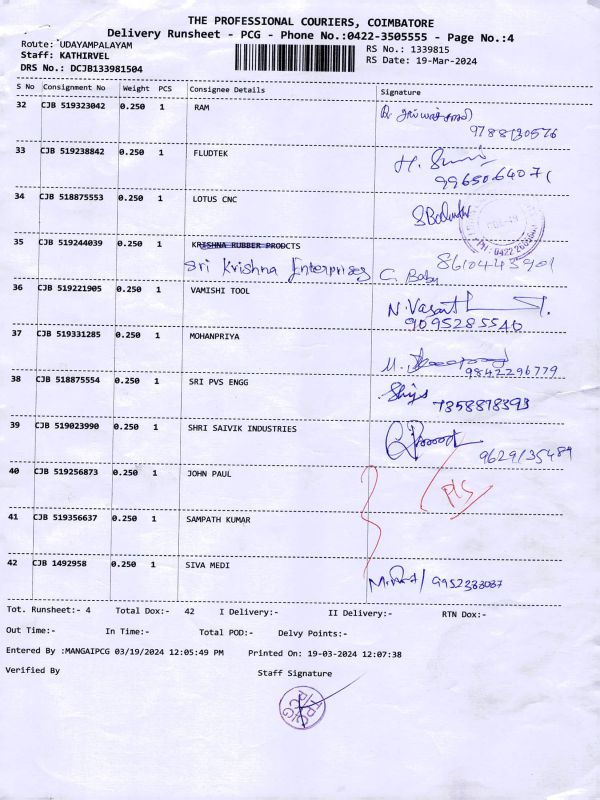 THE PROFESSIONAL COURIERS, COIMBATORE
Delivery Runsheet - PCG - Phone No.:0422-3505555 - Page No.:4
Route: UDAYAMPALAYAM
RS No.: 1339815
Staff: KATHIRVEL
RS Date: 19-Mar-2024
DRS No.: DCJB133981504
S No Consignment No Weight PCS Consignee Details Signature
32 CJB 519323042 0.250 1 RAM
9788130576
33 CJB 519238842 0.250 1 FLUDTEK
9965064071
34 CJB 518875553 0.250 1 LOTUS CNC
35 CJB 519244039 0.250 1 KRISHNA RUBBER PRODCTS
Sri Krishna Enterprises C. Babu 8610443901
36 CJB 519221905 0.250 1 VAMISHI TOOL
N. Vasanth
9095285540
37 CJB 519331285 0.250 1 MOHANPRIYA
9842296779
38 CJB 518875554 0.250 1 SRI PVS ENGG
7358878393
39 CJB 519023990 0.250 1 SHRI SAIVIK INDUSTRIES
9629135484
40 CJB 519256873 0.250 1 JOHN PAUL
41 CJB 519356637 0.250 1 SAMPATH KUMAR
42 CJB 1492958 0.250 1 SIVA MEDI
9952383087
Tot. Runsheet:- 4 Total Dox:- 42 I Delivery:- II Delivery:- RTN Dox:-
Out Time:- In Time:- Total POD:- Delvy Points:-
Entered By :MANGAIPCG 03/19/2024 12:05:49 PM Printed On: 19-03-2024 12:07:38
Verified By Staff Signature